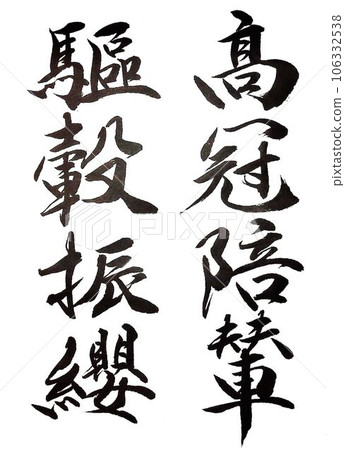 高冠陪輦
驅轂振纓
PIXTA
106332538